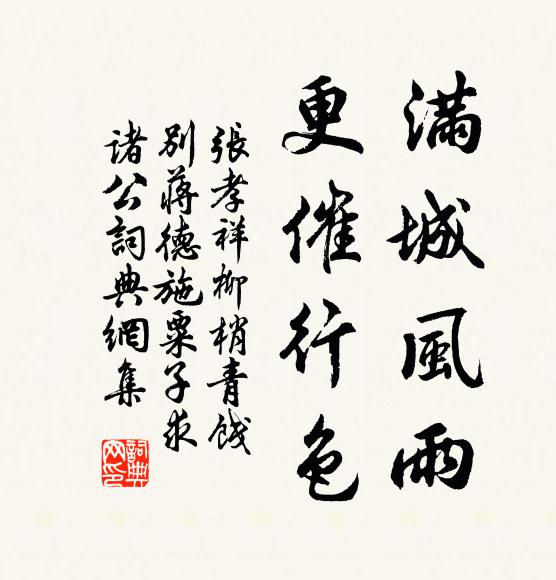 滿城風雨
更催行色
張孝祥柳梢青餞
別蔣德施粟子求
諸公詞典網集
詞典網印